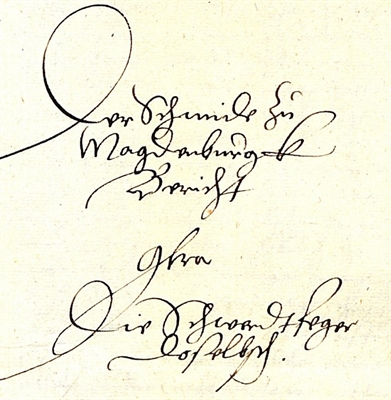 Der Schmide zu
Magdenburgk
Bericht
Ctra
Die Schwerdtfeger
doselbsth.